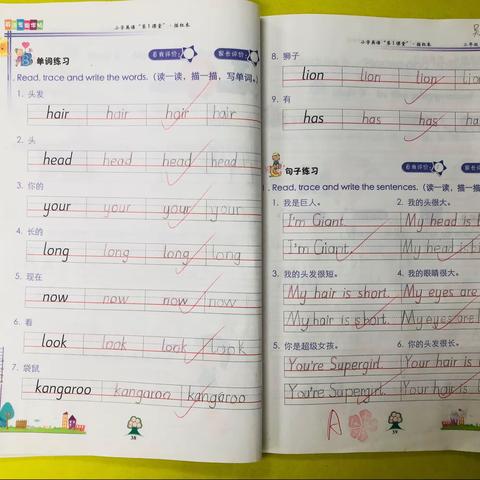 小学英语"第1课堂"·描红本
自我评价:
家长评价:
单词练习
Read, trace and write the words.(读一读,描一描,写单词。)
1. 头发
hair hair hair hair
2. 头
head head head head
3. 你的
your your your your
4. 长的
long long long long
5. 现在
now now now now
6. 看
look look look look
7. 袋鼠
kangaroo kangaroo kangaroo
38
小学英语"第1课堂"·描红本
三年级
8. 狮子
lion lion lion lion
9. 有
has has has has
自我评价:
句子练习
Read, trace and write the sentences.(读一读,描一描
1. 我是巨人。 2. 我的头很大。
I'm Giant. My head is
I'm Giant. My head is
3. 我的头发很短。 4. 我的眼睛很大。
My hair is short. My eyes are
My hair is short. My eyes are
5. 你是超级女孩。 6. 你的头发很长。
You're Supergirl. Your hair is
You're Supergirl. Your hair is
A
39